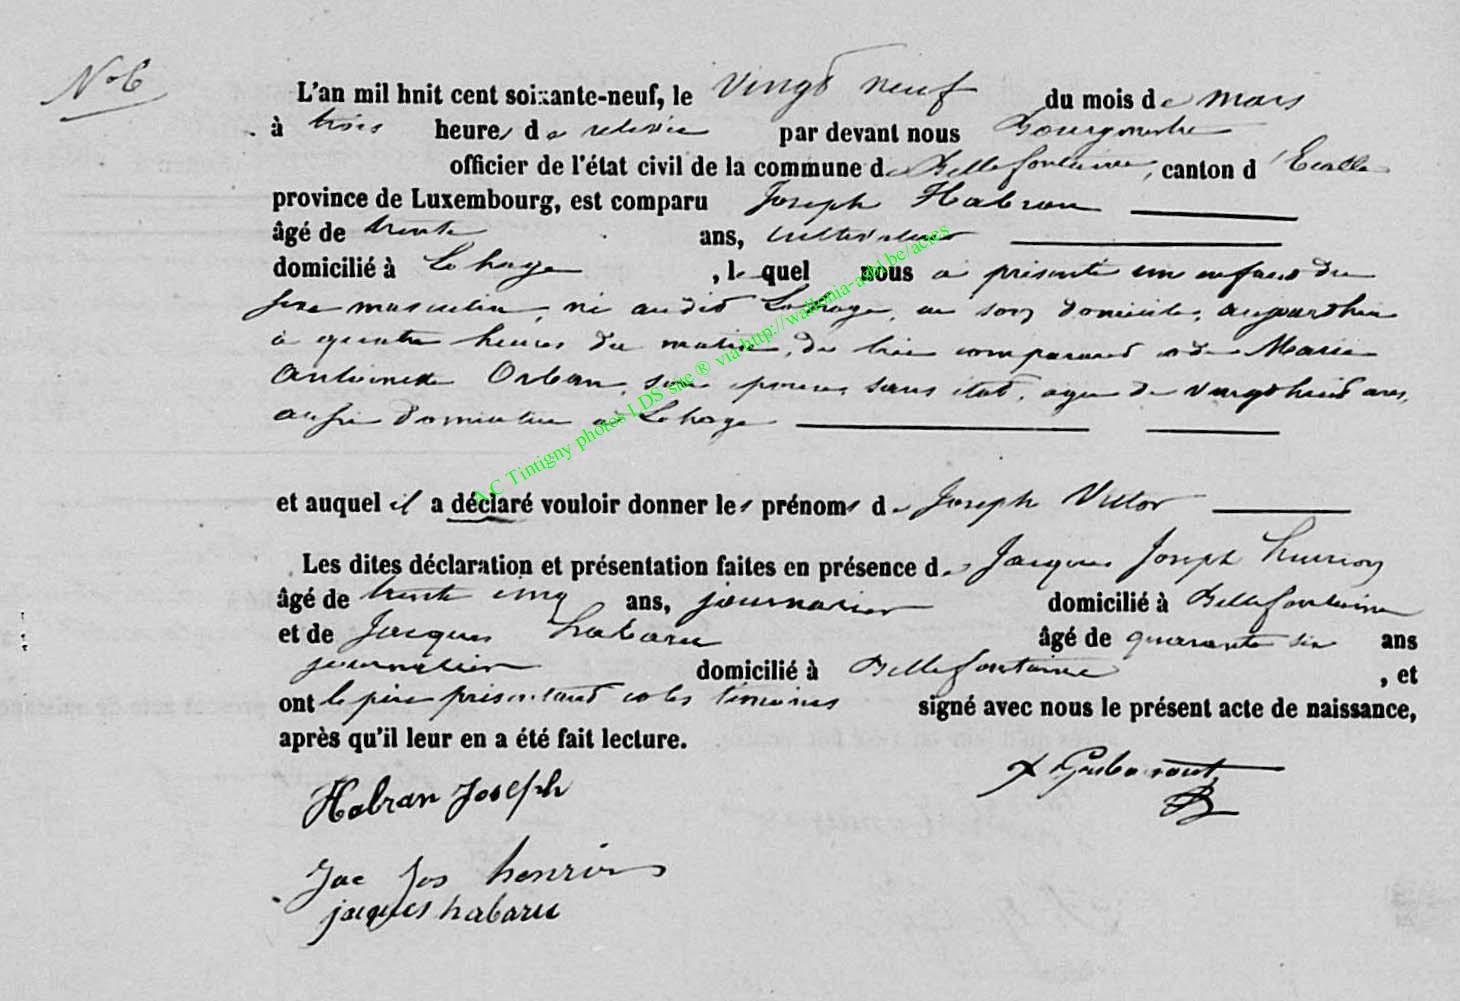 No 6
L'an mil huit cent soixante-neuf, le vingt neuf du mois de mars
à trois heures de relevée par devant nous Bourgmestre
officier de l'état civil de la commune de Bellefontaine, canton d'Etalle
province de Luxembourg, est comparu Joseph Habran
âgé de trente ans, cultivateur
domicilié à Lahage, lequel nous a présenté un enfant du
sexe masculin, né audit Lahage, en son domicile, aujourdhui
à quatre heures du matin, de lui comparant et de Marie
Antoinette Orban, son épouse, sans état, agée de vingt huit ans,
aussi domiciliée à Lahage
et auquel il a déclaré vouloir donner les prénoms de Joseph Victor
Les dites déclaration et présentation faites en présence de Jacques Joseph henrion
âgé de trente cinq ans, journalier domicilié à Bellefontaine
et de Jacques habaru âgé de quarante six ans
journalier domicilié à Bellefontaine, et
ont le père présentant et les témoins signé avec nous le présent acte de naissance,
après qu'il leur en a été fait lecture.
Habran Joseph
Jac Jos henrion
jacques habaru
A.C Tintigny photos LDS site ® via http://wallonia-asbl.be/actes